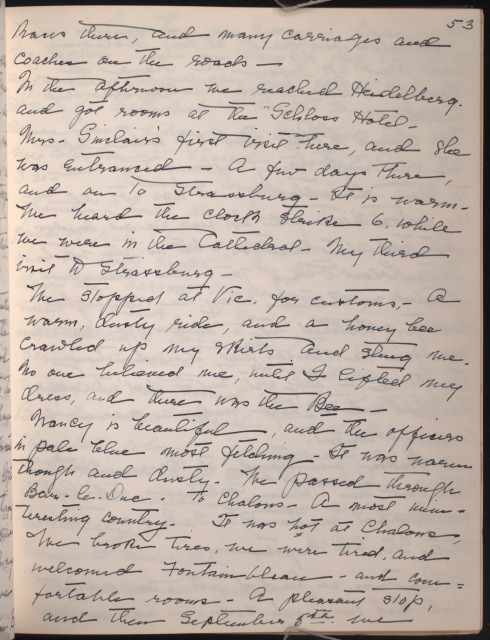 53
trans there, and many carriages and
coaches on the roads —
In the afternoon we reached Heidelberg.
and got rooms at the "Schloss Hotel —
Mrs - Sinclair's first visit here, and she
was entranced — A few days there,
and on to Strassburg — It is warm —
We heard the clock strike 6. while
we were in the Cathedral — My third
visit to Strassburg —
We stopped at Vic. for customs, — A
warm, dusty ride, and a honey bee
crawled up my skirts and stung me.
No one believed me, until I lifted my
dress, and there was the Bee —
Nancy is beautiful, and the officers
in pale blue most fetching — It was warm
though and dusty. We passed through
Bar-le-Duc. To Chalons — A most unin-
teresting country — It was hot at Chalons,
We broke tires, we were tired, and
welcomed Fontainbleau — and com =
fortable rooms — A pleasant stop,
and then September 5th we